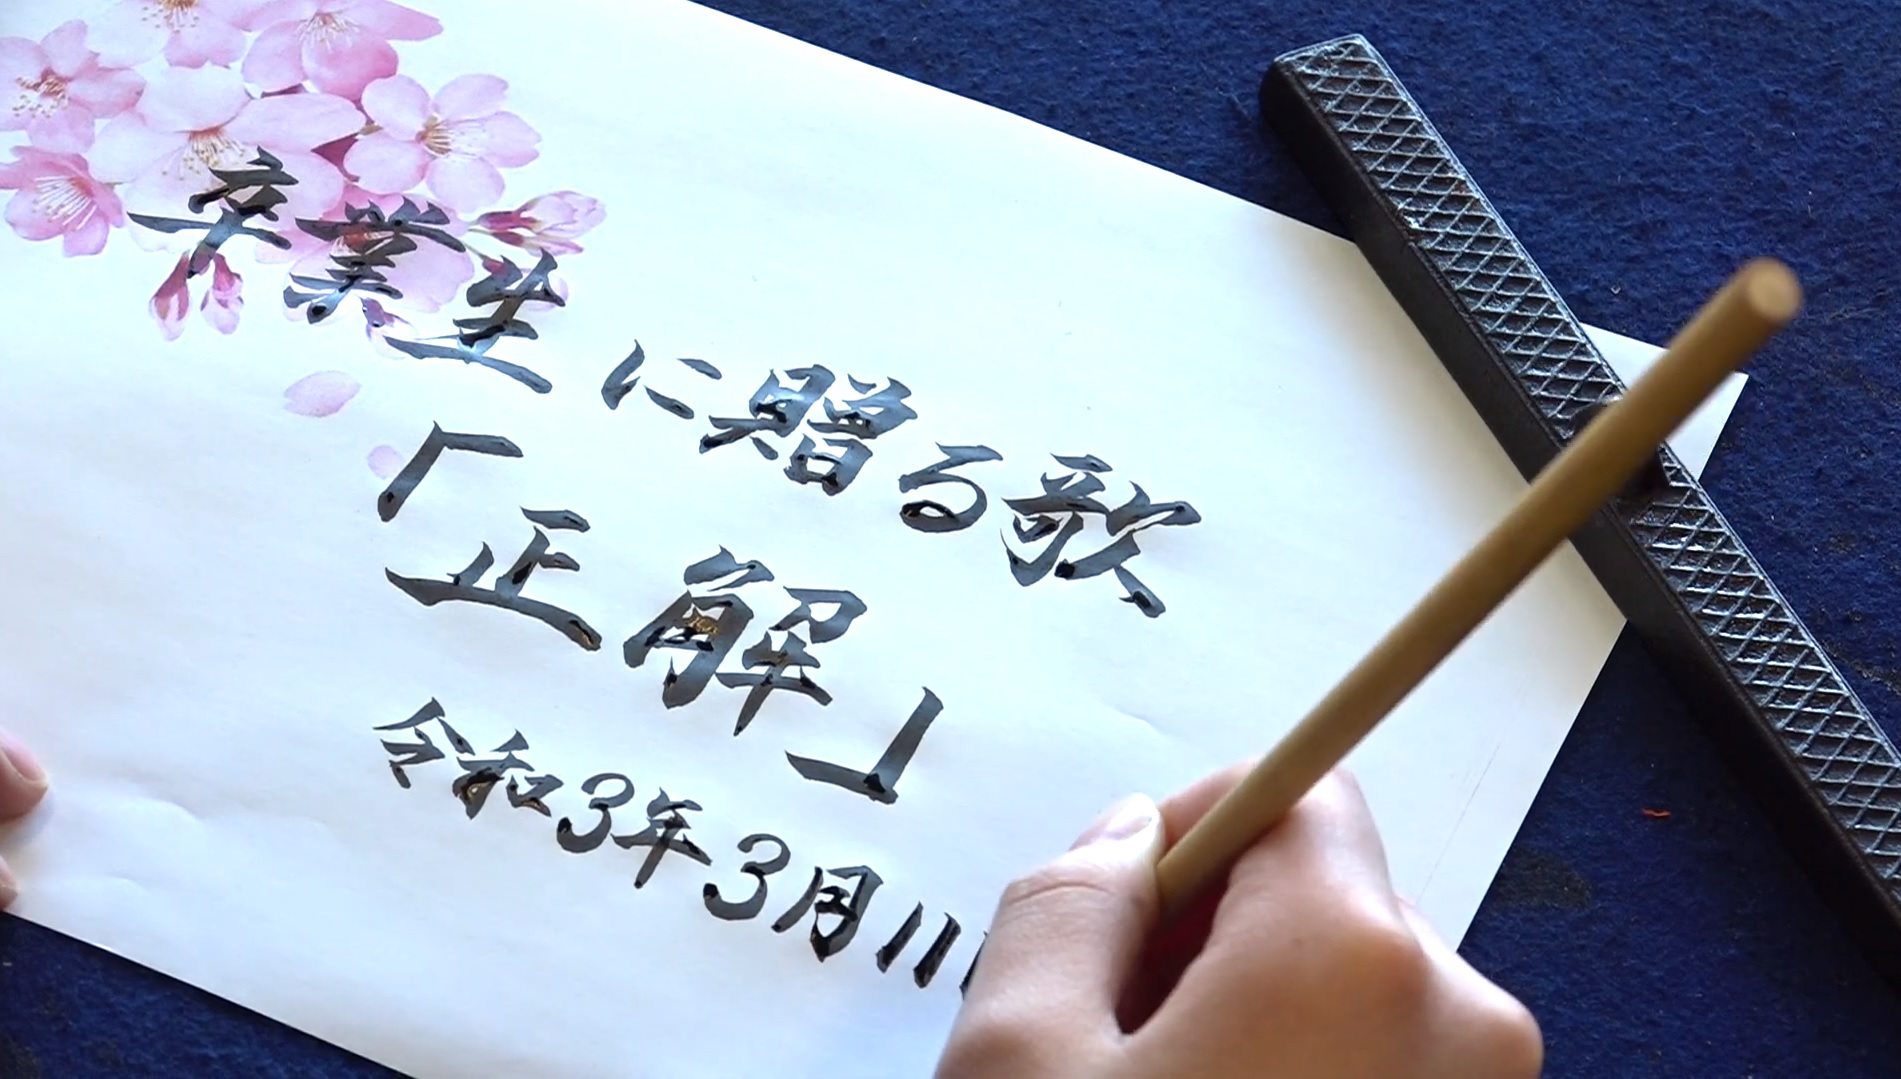 卒業生に贈る歌
「正解」
令和3年3月11